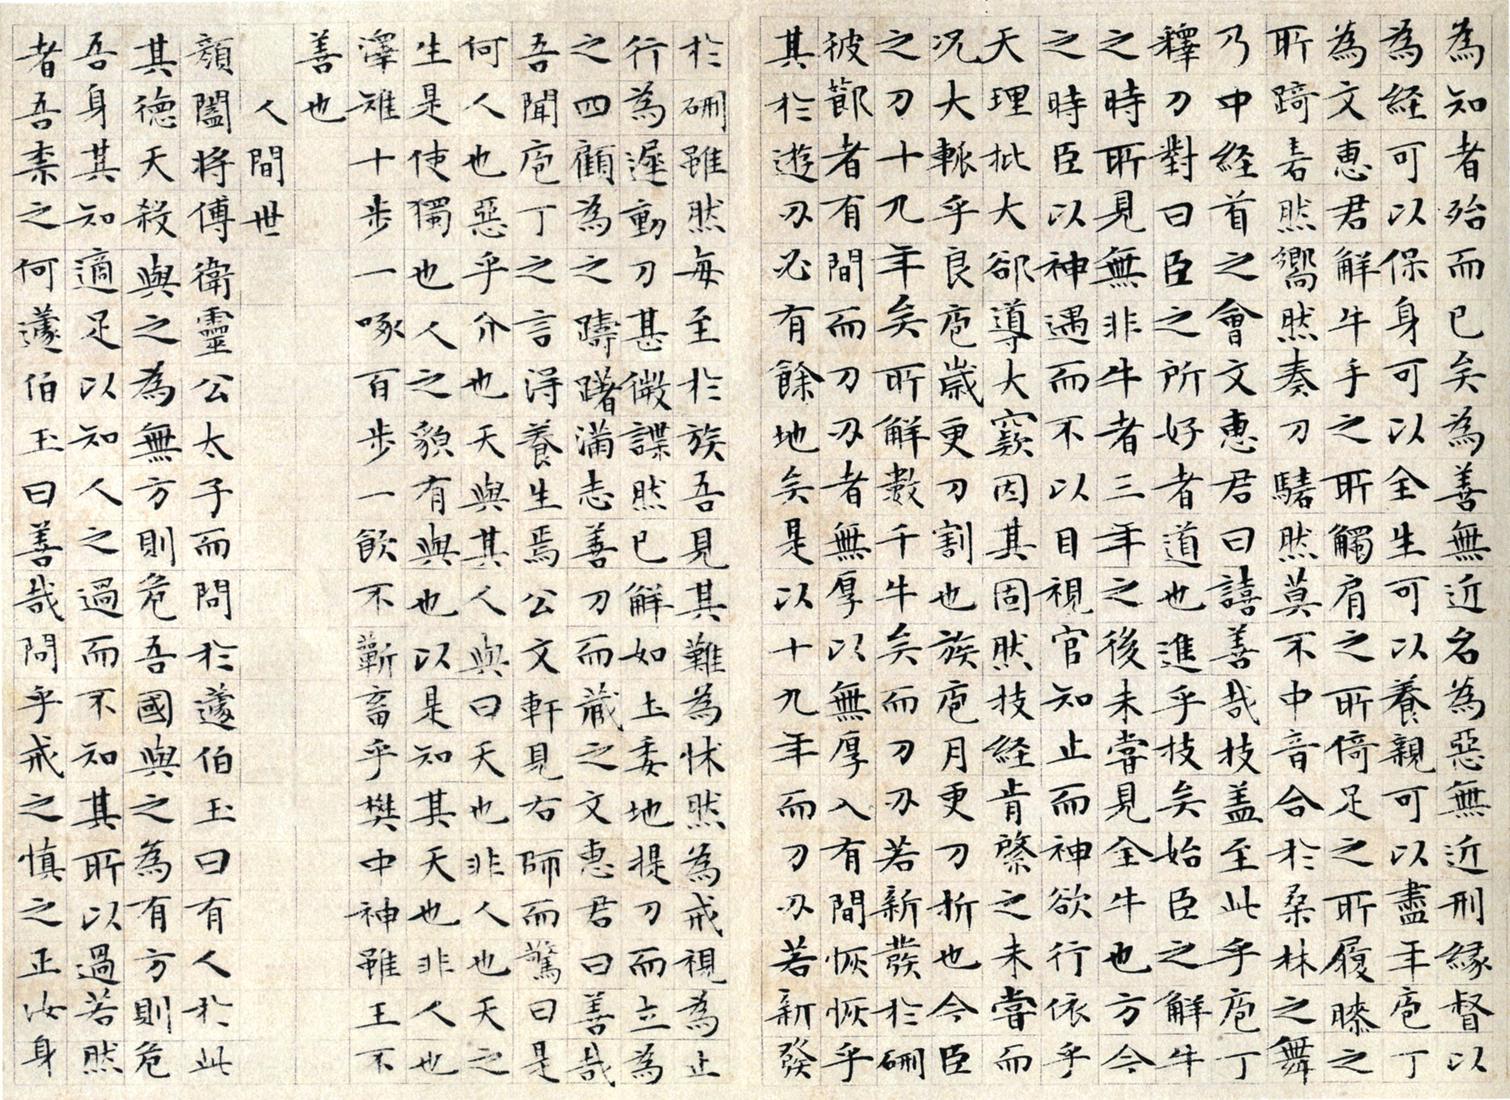 為知者殆而已矣為善無近名為惡無近刑緣督以
為経可以保身可以全生可以養親可以盡年庖丁
為文恵君解牛手之所觸肩之所倚足之所履膝之
所踦砉然嚮然奏刀騞然莫不中音合於桑林之舞
乃中経首之會文恵君曰譆善哉技盖至此乎庖丁
釋刀對曰臣之所好者道也進乎技矣始臣之解牛
之時所見無非牛者三年之後未嘗見全牛也方今
之時臣以神遇而不以目視官知止而神欲行依乎
天理批大郤導大窾因其固然技経肯綮之未嘗而
况大軱乎良庖歲更刀割也族庖月更刀折也今臣
之刀十九年矣所解數千牛矣而刀刃若新發於硎
彼節者有間而刀刃者無厚以無厚入有間恢恢乎
其於遊刃必有餘地矣是以十九年而刀刃若新發
於硎雖然每至於族吾見其難為怵然為戒視為止
行為遲動刀甚微諜然已解如土委地提刀而立為
之四顧為之躊躇滿志善刀而藏之文恵君曰善哉
吾聞庖丁之言得養生焉公文軒見右師而驚曰是
何人也惡乎介也天與其人與曰天也非人也天之
生是使獨也人之貌有與也以是知其天也非人也
澤雉十步一啄百步一飲不蘄畜乎樊中神雖王不
善也
人間世
顏闔將傅衛靈公太子而問於蘧伯玉曰有人於此
其德天殺與之為無方則危吾國與之為有方則危
吾身其知適足以知人之過而不知其所以過若然
者吾柰之何蘧伯玉曰善哉問乎戒之慎之正汝身